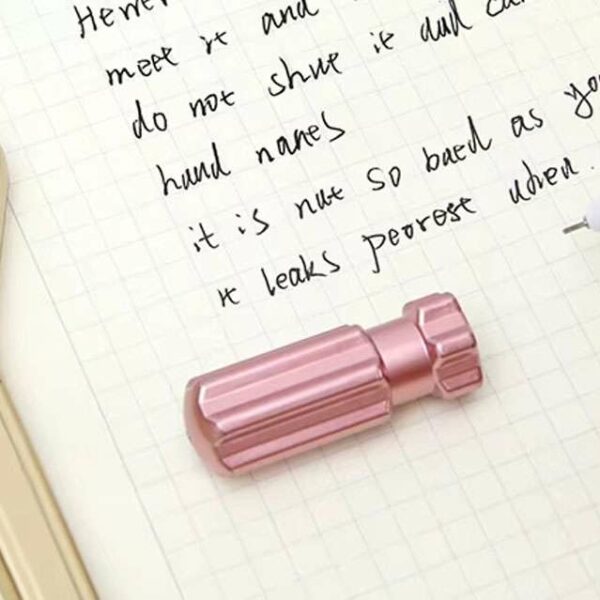 meet it and
do not shue it and
hand nanes
it is not so baed as
it leaks peorest when.